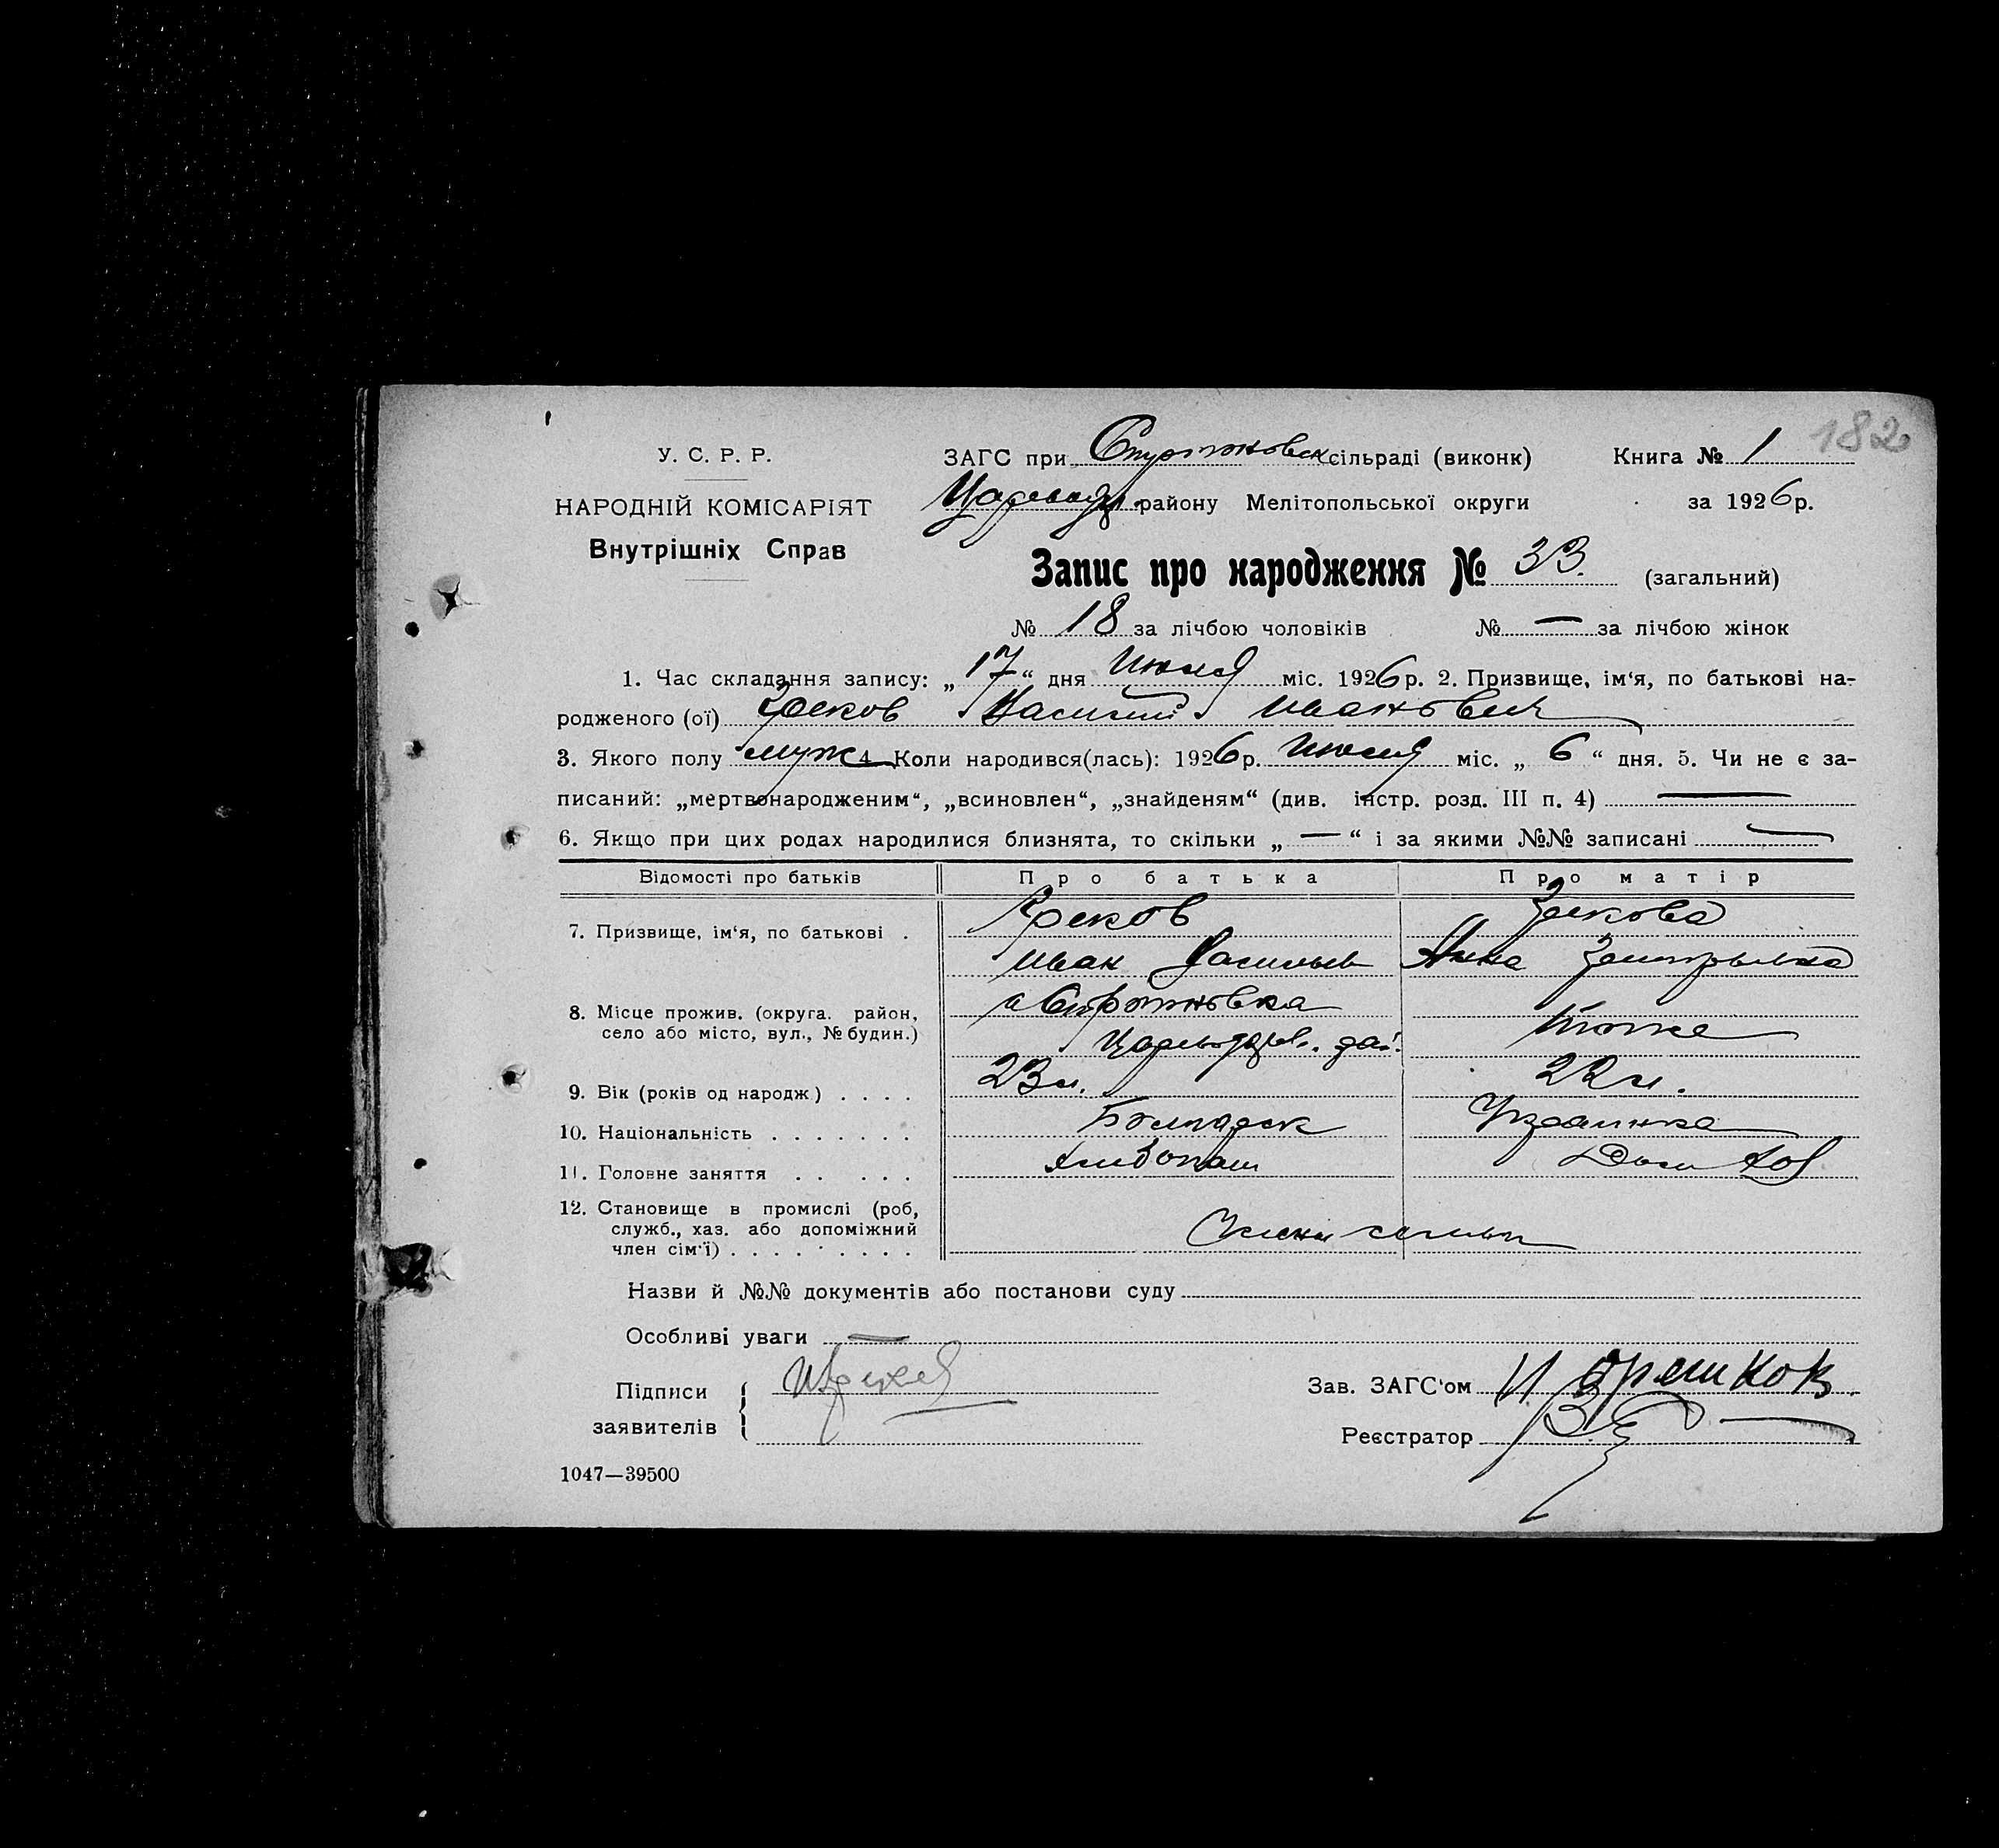 182
У. С. Р. Р.
НАРОДНІЙ КОМІСАРІЯТ
Внутрішніх Справ
ЗАГС при сільраді (виконк) Книга № 1
району Мелітопольської округи за 1926 р.
Запис про народження № 33. (загальний)
№ 18 за лічбою чоловіків № — за лічбою жінок
1. Час складання запису: „17“ дня Июля міс. 1926 р. 2. Призвище, ім‘я, по батькові на-
родженого (ої) Василий Иванович
3. Якого полу муж 4. Коли народився(лась): 1926 р. Июля міс. „ 6 “ дня. 5. Чи не є за-
писаний: „мертвонародженим“, „всиновлен“, „знайденям“ (див. інстр. розд. III п. 4) —
6. Якщо при цих родах народилися близнята, то скільки „ — “ і за якими №№ записані —
Відомості про батьків Про батька Про матір
7. Призвище, ім‘я, по батькові .
Иван Васильев Анна
8. Місце прожив. (округа. район,
село або місто, вул., № будин.) тоже
9. Вік (років од народж) . . . . 23 л. 22 л.
10. Національність . . . . . . . Болгарск
11. Головне заняття . . . . . Хлебопаш Дом хоз
12. Становище в промислі (роб,
служб., хаз. або допоміжний
член сім‘ї) . . . . . . . . . Члены семьи
Назви й №№ документів або постанови суду
Особливі уваги —
Підписи
заявителів
Зав. ЗАГС‘ом
Реєстратор
1047—39500